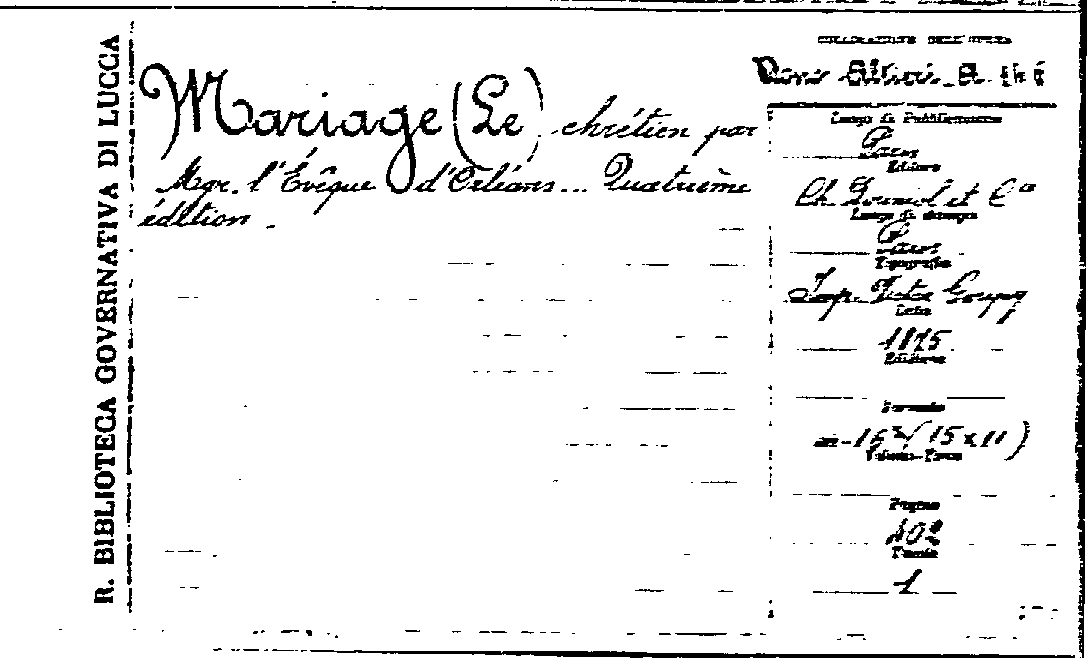 R. BIBLIOTECA GOVERNATIVA DI LUCCA
Mariage (Le) chrétien par
Mgr. l'Évêque d'Orléans... Quatrième
édition.
COLLOCAZIONE DELL'OPERA
Luogo di Pubblicazione
Paris
Editore
Ch. Douniol et C.ie
Luogo di stampa
Paris
Tipografia
Imp. Victor Goupy
Data
1875
Edizione
Formato
in-16° (15x11)
Pagine
402
Tavole
1